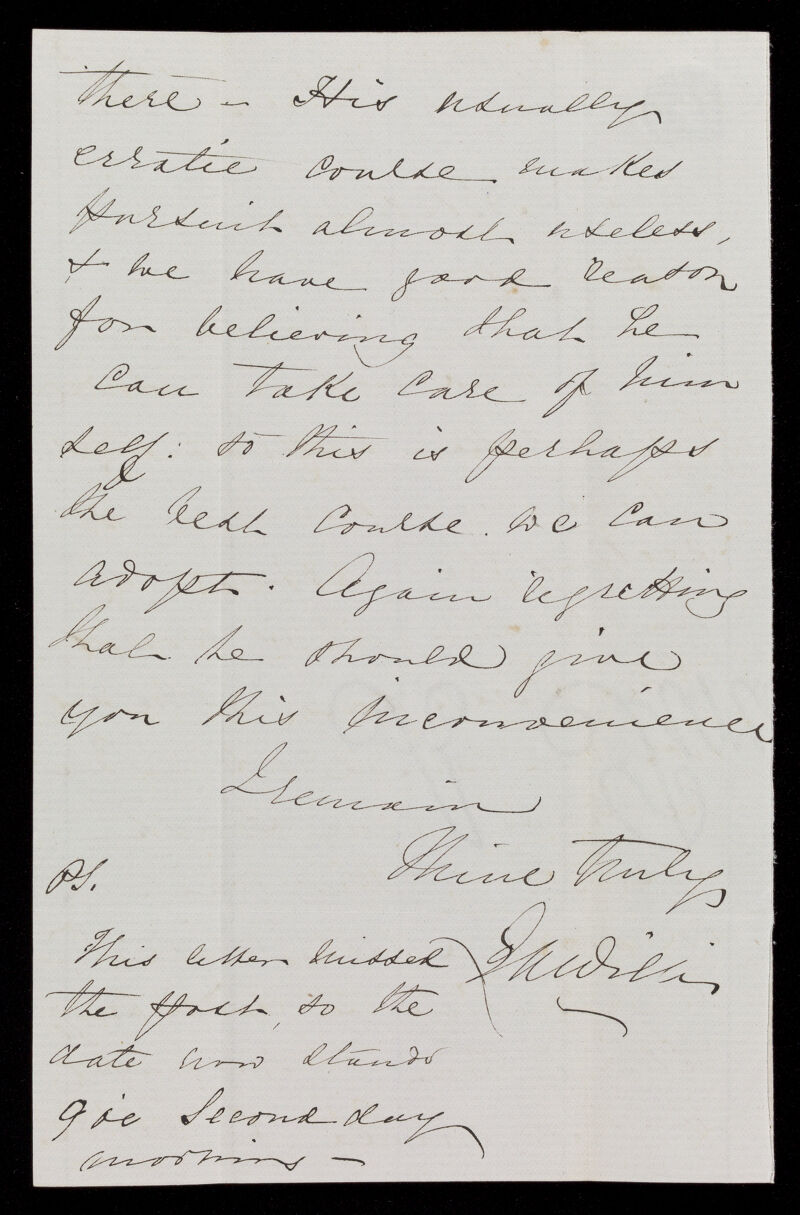 there - His usually
erratic course makes
pursuit almost useless,
& we have good reason
for believing that he
can take care of him
self: so this is perhaps
the best course we can
adopt. Again regretting
that he should give
you this inconvenience
I remain
Thine truly
PS.
This letter missed
the post, so the
date now stands
9 oc Second day
morning -